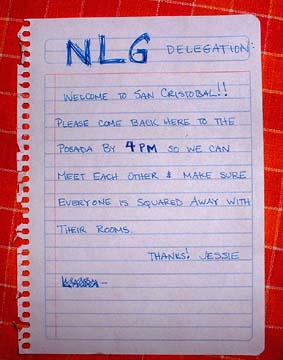 NLG DELEGATION:
WELCOME TO SAN CRISTOBAL!!
PLEASE COME BACK HERE TO THE
POSADA BY 4PM SO WE CAN
MEET EACH OTHER & MAKE SURE
EVERYONE IS SQUARED AWAY WITH
THEIR ROOMS.
THANKS! JESSIE